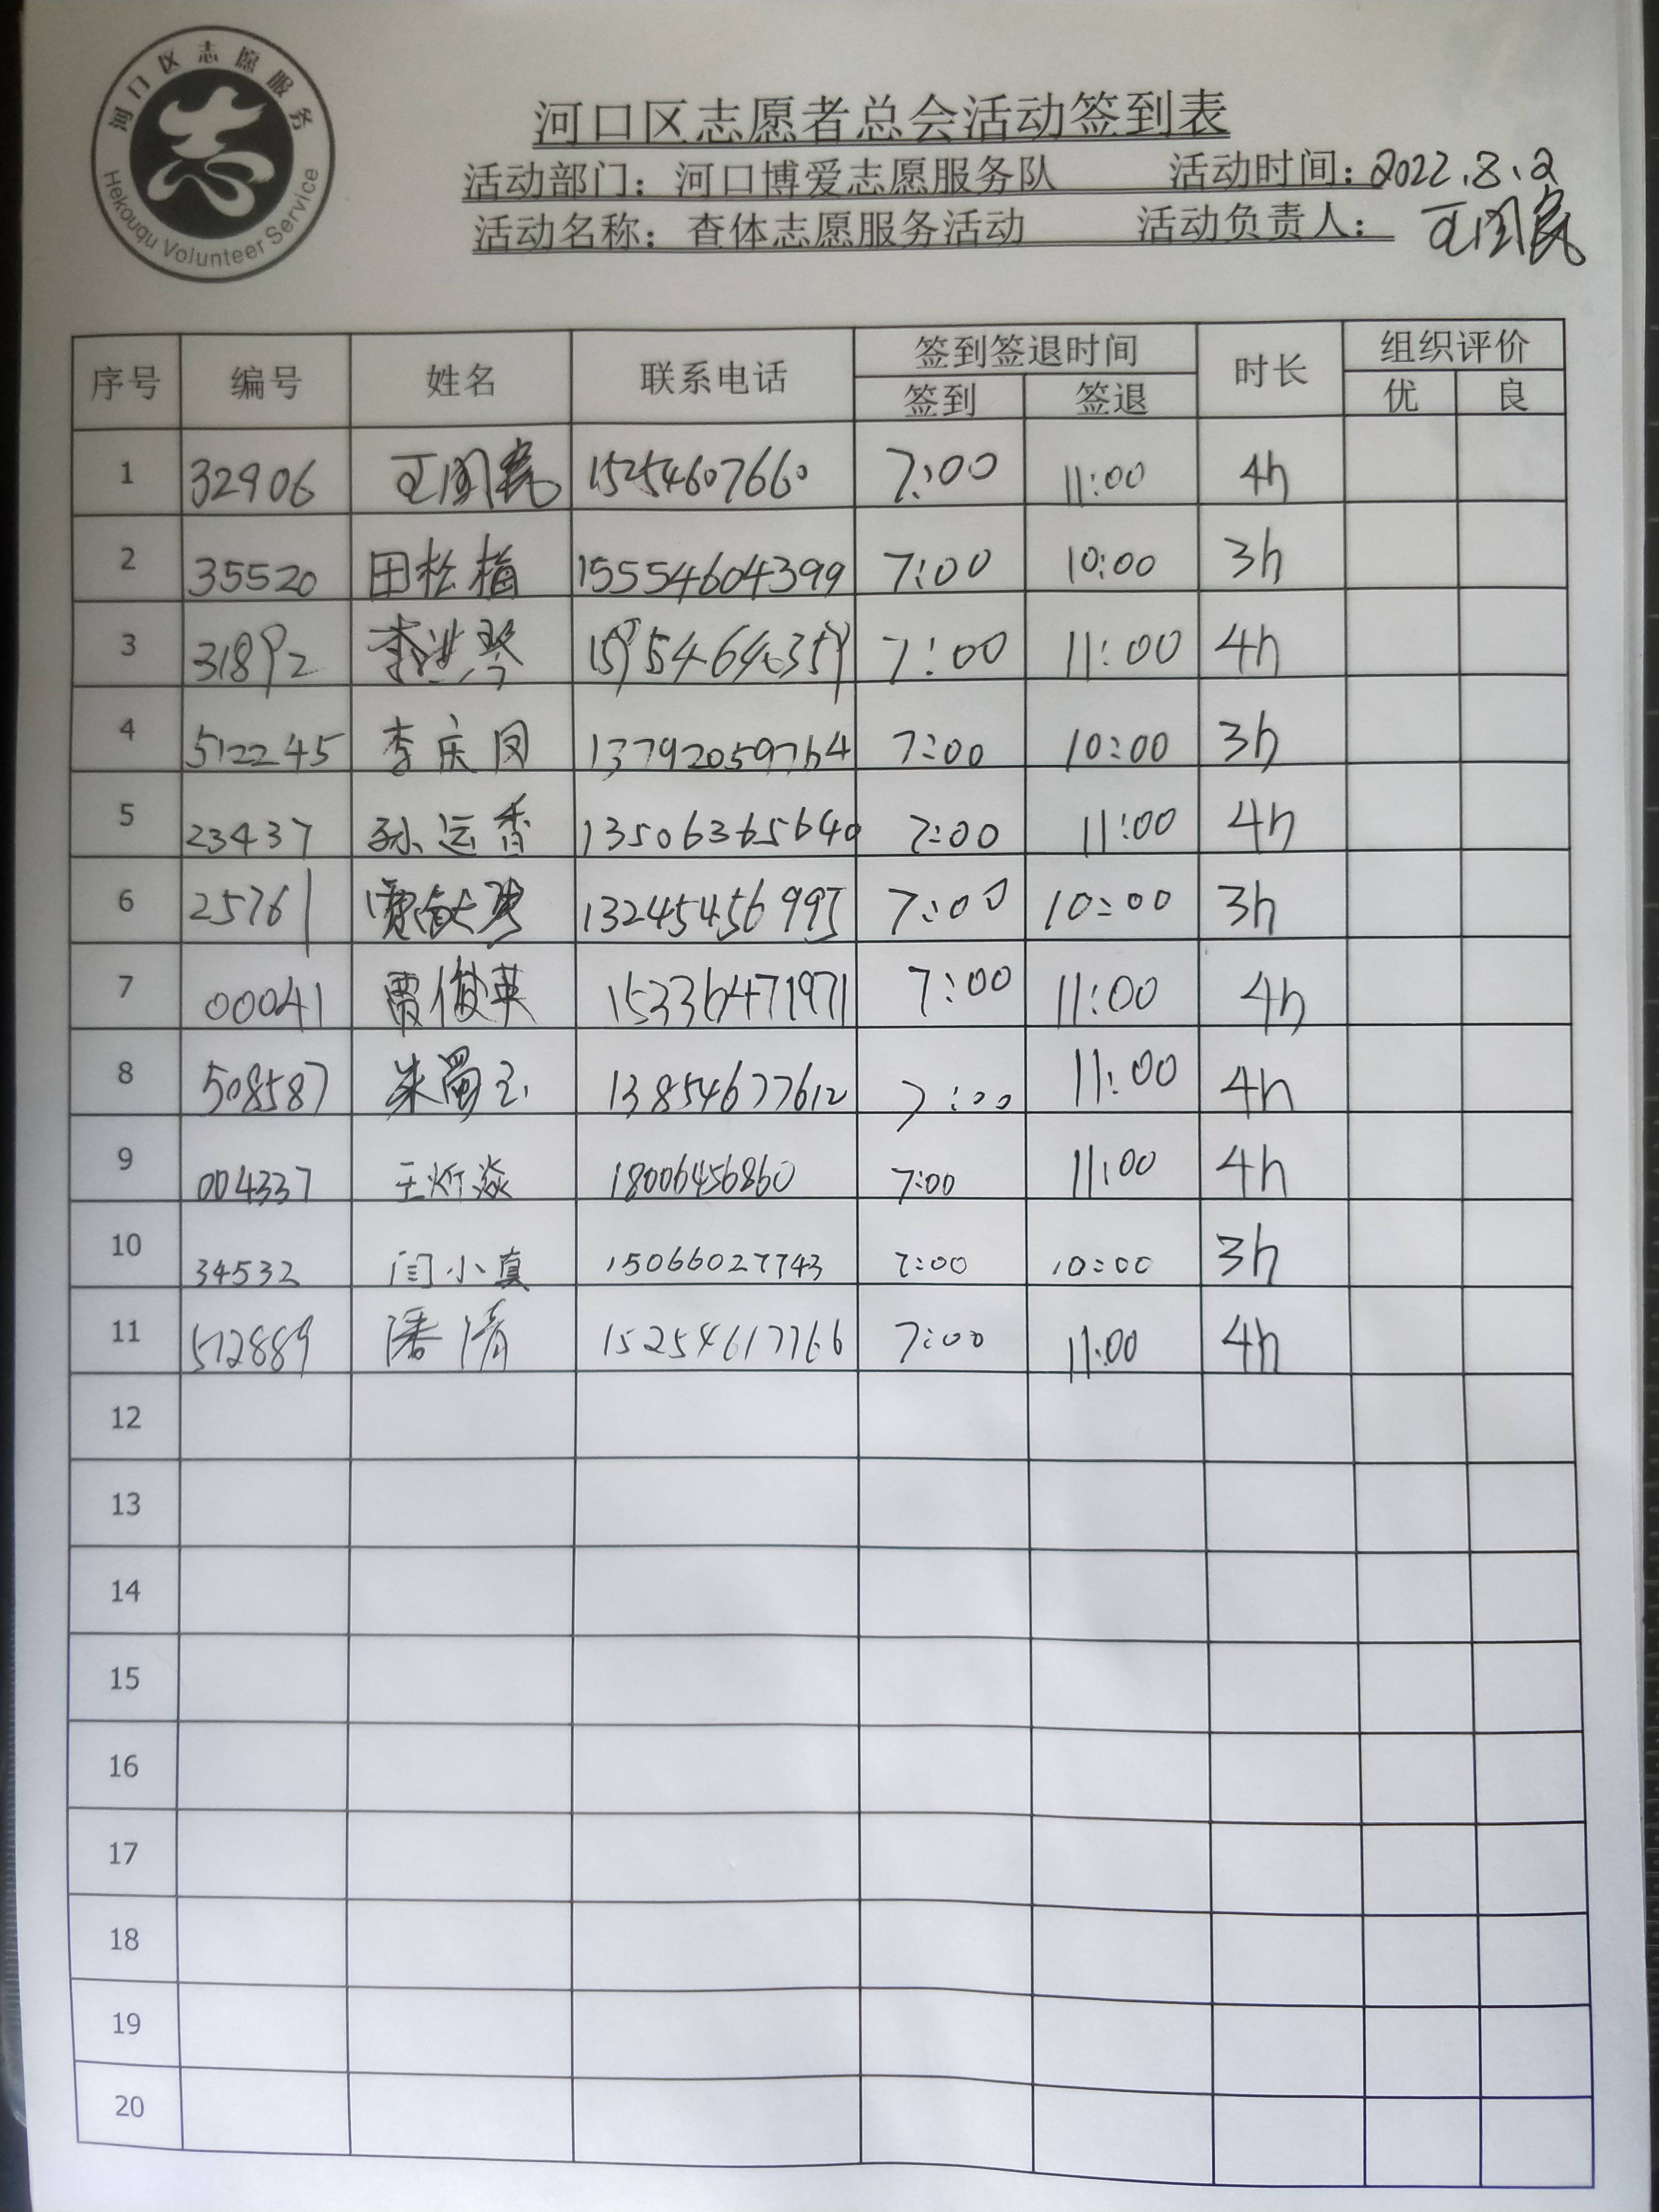 河口区志愿服务
Hekouqu Volunteer Service
河口区志愿者总会活动签到表
活动部门：河口博爱志愿服务队 活动时间：2022.8.2
活动名称：查体志愿服务活动 活动负责人：王国民
序号 编号 姓名 联系电话 签到签退时间 时长 组织评价
签到 签退 优 良
1 32906 王国民 15254607660 7:00 11:00 4h
2 35520 田松梅 15554604399 7:00 10:00 3h
3 31892 李洪琴 7:00 11:00 4h
4 512245 李庆凤 13792059764 7:00 10:00 3h
5 23437 孙运香 13506365640 7:00 11:00 4h
6 25761 13245456995 7:00 10:00 3h
7 00041 贾俊英 15336471971 7:00 11:00 4h
8 508587 朱蜀玉 13854677612 7:00 11:00 4h
9 004337 王炘焱 18006456860 7:00 11:00 4h
10 34532 闫小真 15066027743 7:00 10:00 3h
11 512889 潘倩 15254617766 7:00 11:00 4h
12
13
14
15
16
17
18
19
20